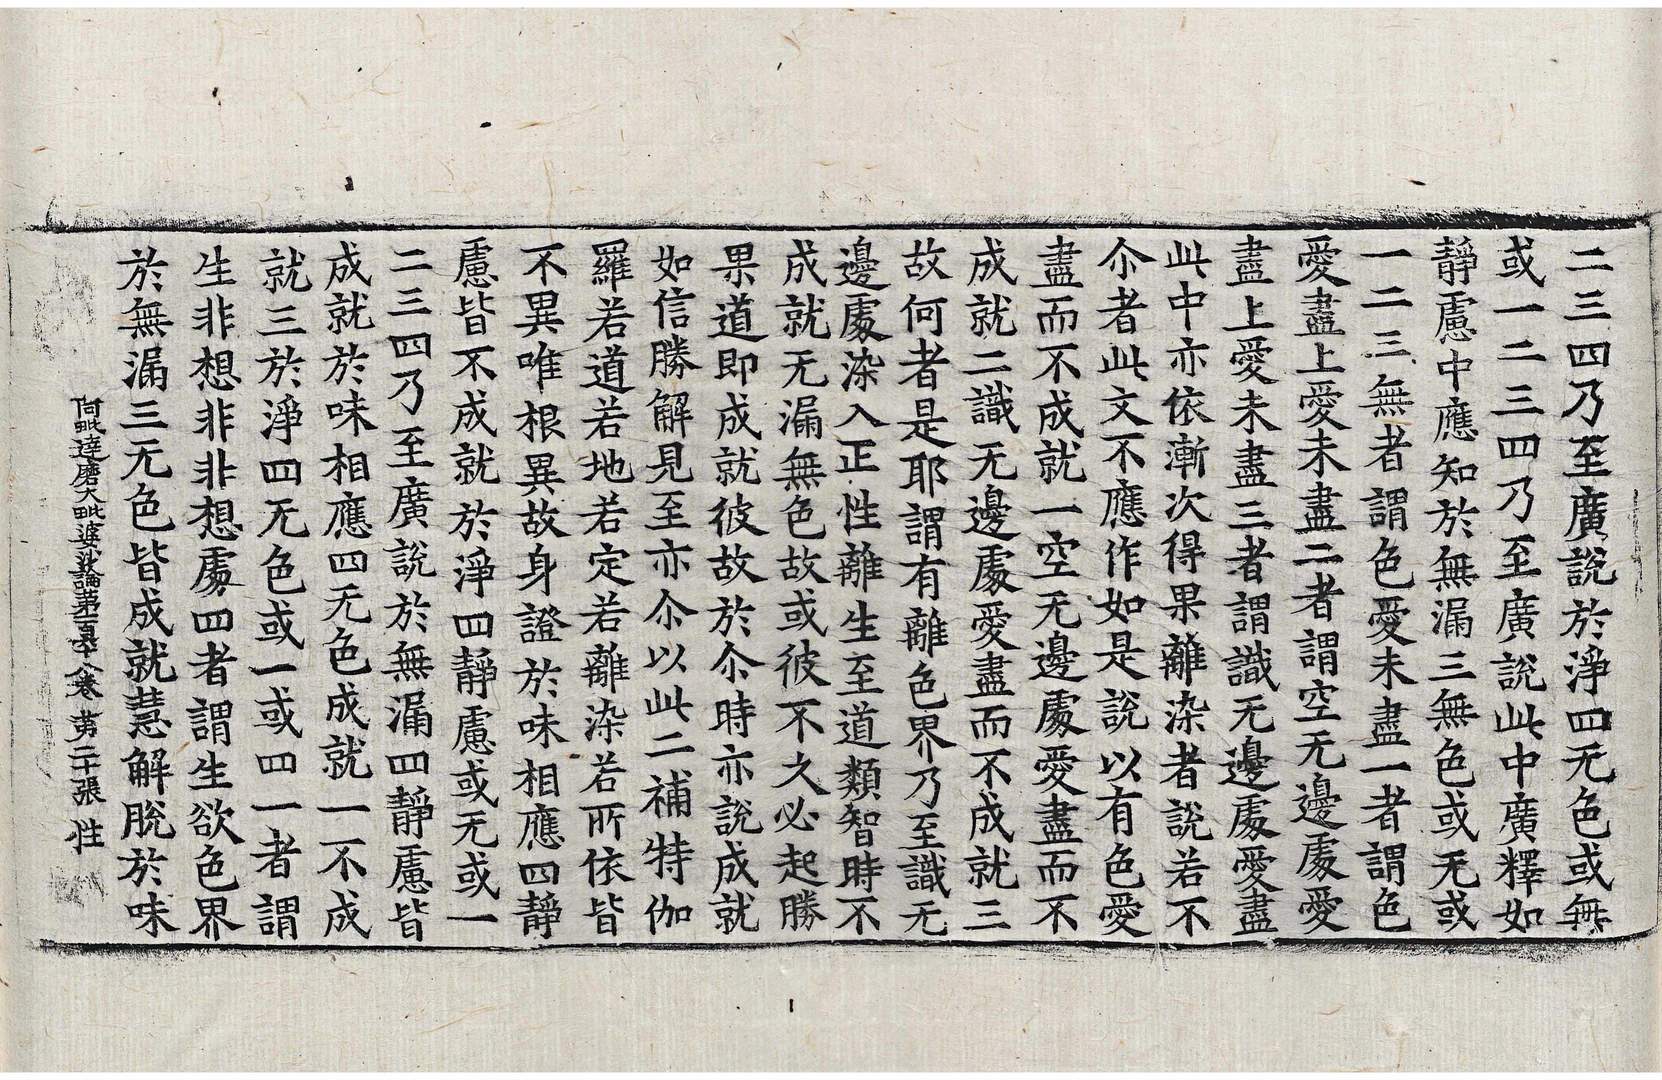 二三四乃至廣說於淨四无色或無
或一二三四乃至廣說此中廣釋如
靜慮中應知於無漏三無色或无或
一二三無者謂色愛未盡一者謂色
愛盡上愛未盡二者謂空无邊處愛
盡上愛未盡三者謂識无邊處愛盡
此中亦依漸次得果離染者說若不
尒者此文不應作如是說以有色愛
盡而不成就一空无邊處愛盡而不
成就二識无邊處愛盡而不成就三
故何者是耶謂有離色界乃至識无
邊處染入正性離生至道類智時不
成就无漏無色故或彼不久必起勝
果道即成就彼故於尒時亦說成就
如信勝解見至亦尒以此二補特伽
羅若道若地若定若離染若所依皆
不異唯根異故身證於味相應四靜
慮皆不成就於淨四靜慮或无或一
二三四乃至廣說於無漏四靜慮皆
成就於味相應四无色成就一不成
就三於淨四无色或一或四一者謂
生非想非非想處四者謂生欲色界
於無漏三无色皆成就慧解脫於味
阿毗達磨大毗婆沙論苐卷 苐二十張 性